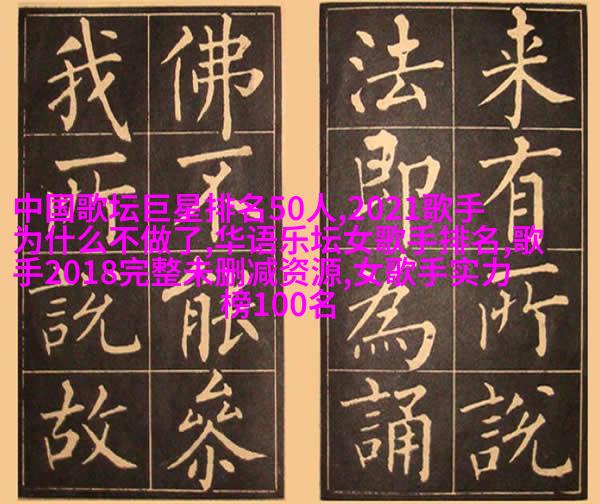 来有所說
法即為誦
佛不能參
我所說故
中国歌坛巨星排名50人,2021歌手
为什么不做了,华语乐坛女歌手排名,歌
手2018完整未删减资源,女歌手实力
榜100名